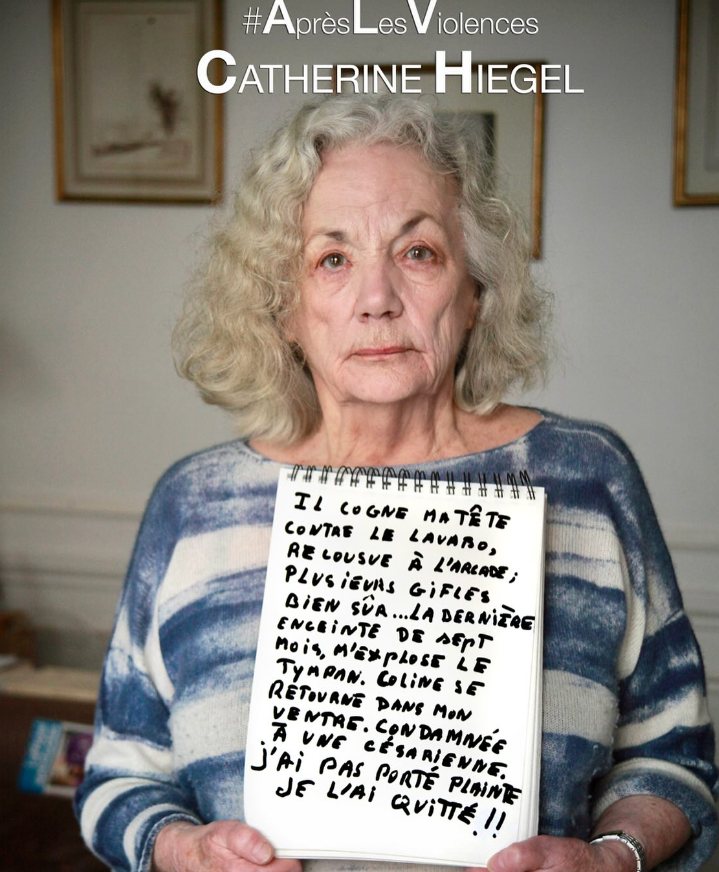 #AprèsLesViolences
CATHERINE HIEGEL
IL COGNE MA TÊTE
CONTRE LE LAVABO,
RECOUSUE À L'ARCADE;
PLUSIEURS GIFLES
BIEN SÛR...LA DERNIÈRE
ENCEINTE DE SEPT
MOIS, M'EXPLOSE LE
TYMPAN. COLINE SE
RETOURNE DANS MON
VENTRE. CONDAMNÉE
À UNE CÉSARIENNE.
J'AI PAS PORTÉ PLAINTE
JE L'AI QUITTÉ!!